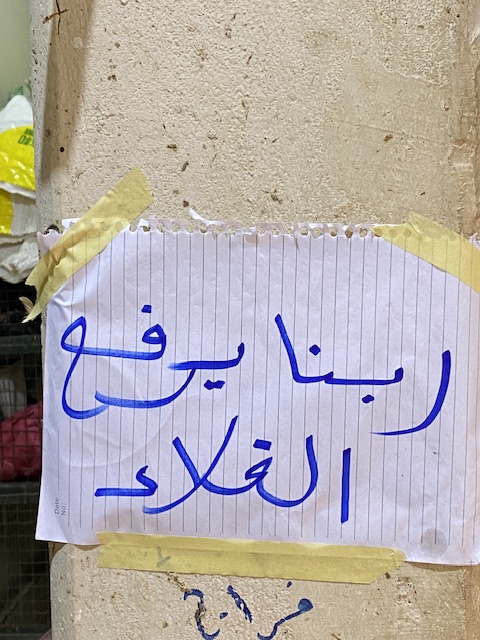 ربنا يرفع
الغلاء
Date
No: